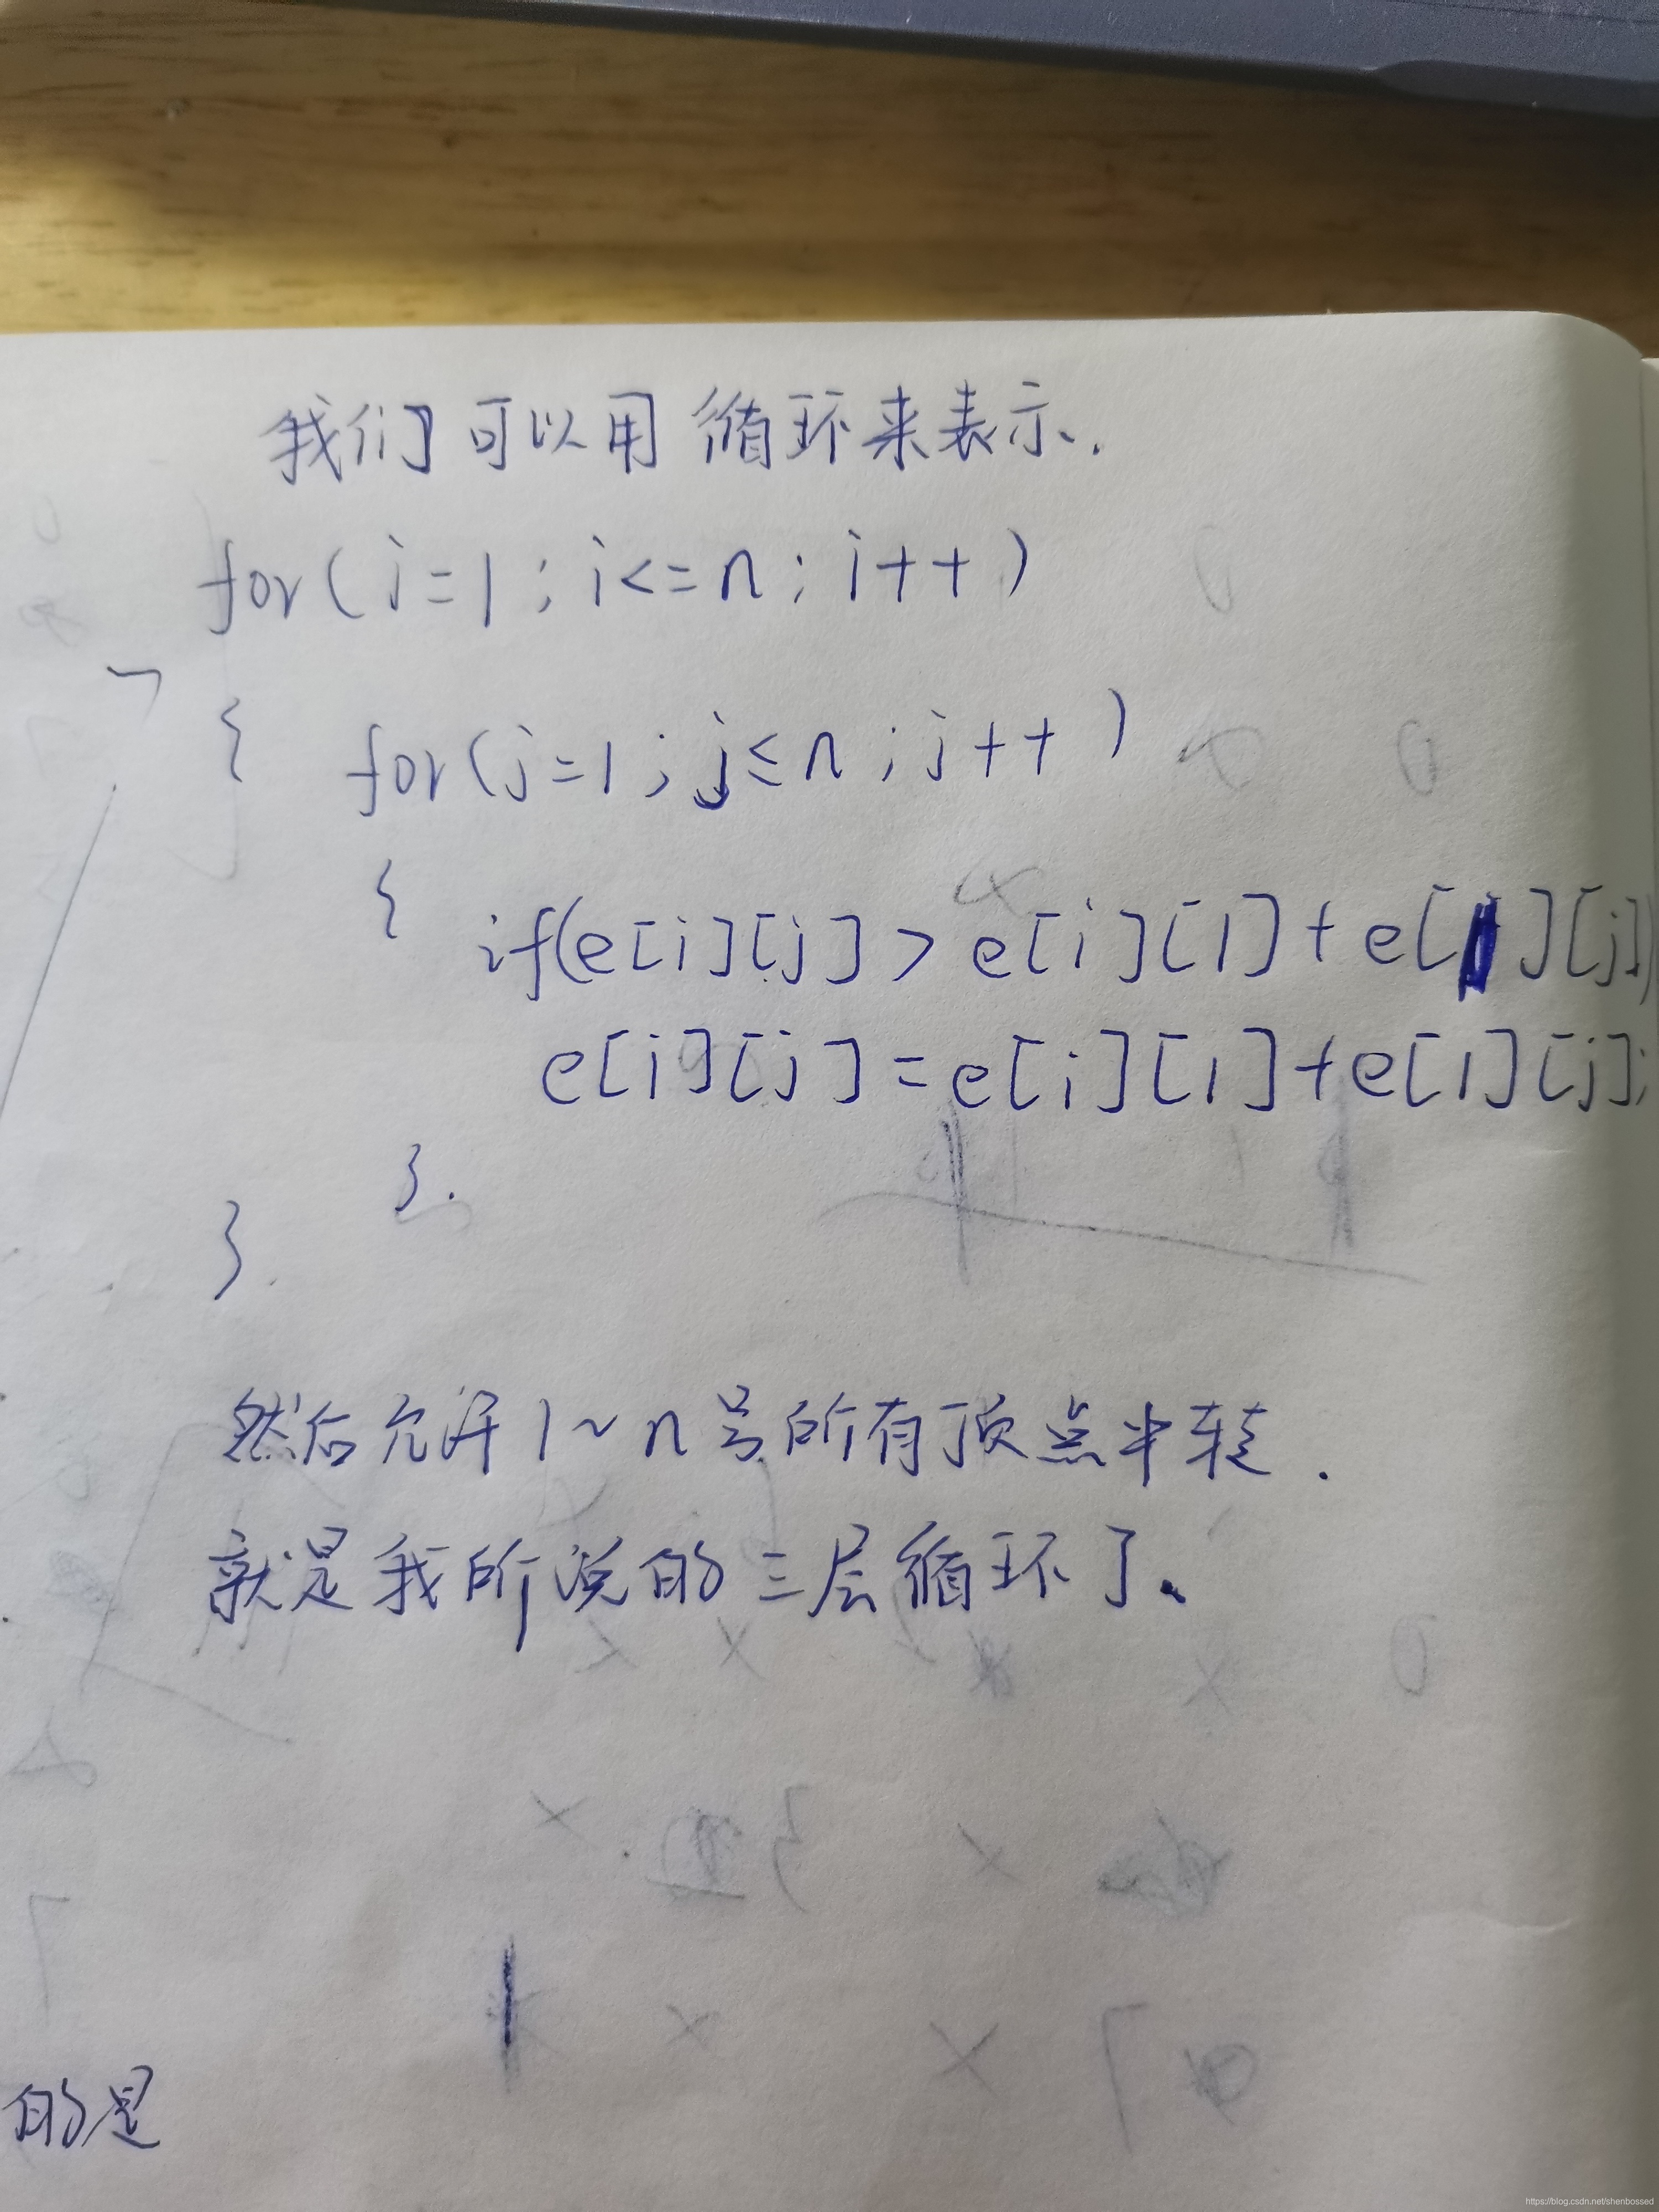 我们可以用循环来表示.
for(i=1;i<=n;i++)
{ for(j=1;j≤n;j++)
{ if(e[i][j]>e[i][1]+e[1][j])
e[i][j]=e[i][1]+e[1][j];
}.
}.
然后允许1~n号的所有顶点中转.
就是我所说的三层循环了。
的是
https://blog.csdn.net/shenbossed